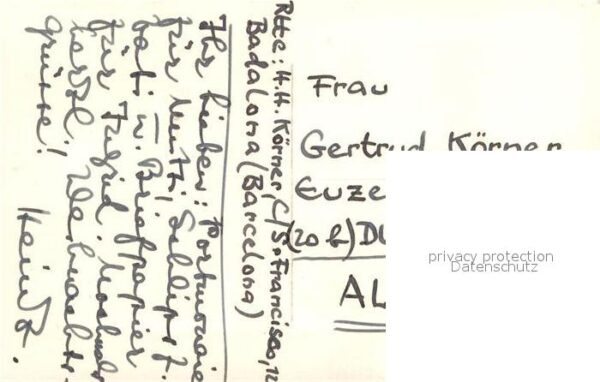 Rtte: H. H. Körner, C/S. Francisco, 12
Badalona (Barcelona)
Ihr Lieben! Portmonaie
für Mutti! Schlips f.
Vati u. Briefpapier
für Ingrid. Nochmals
herzl. Weihnachts-
grüsse!
Heinz.
Frau
Gertrud Körner
Euze
(20 b)
AL
privacy protection
Datenschutz